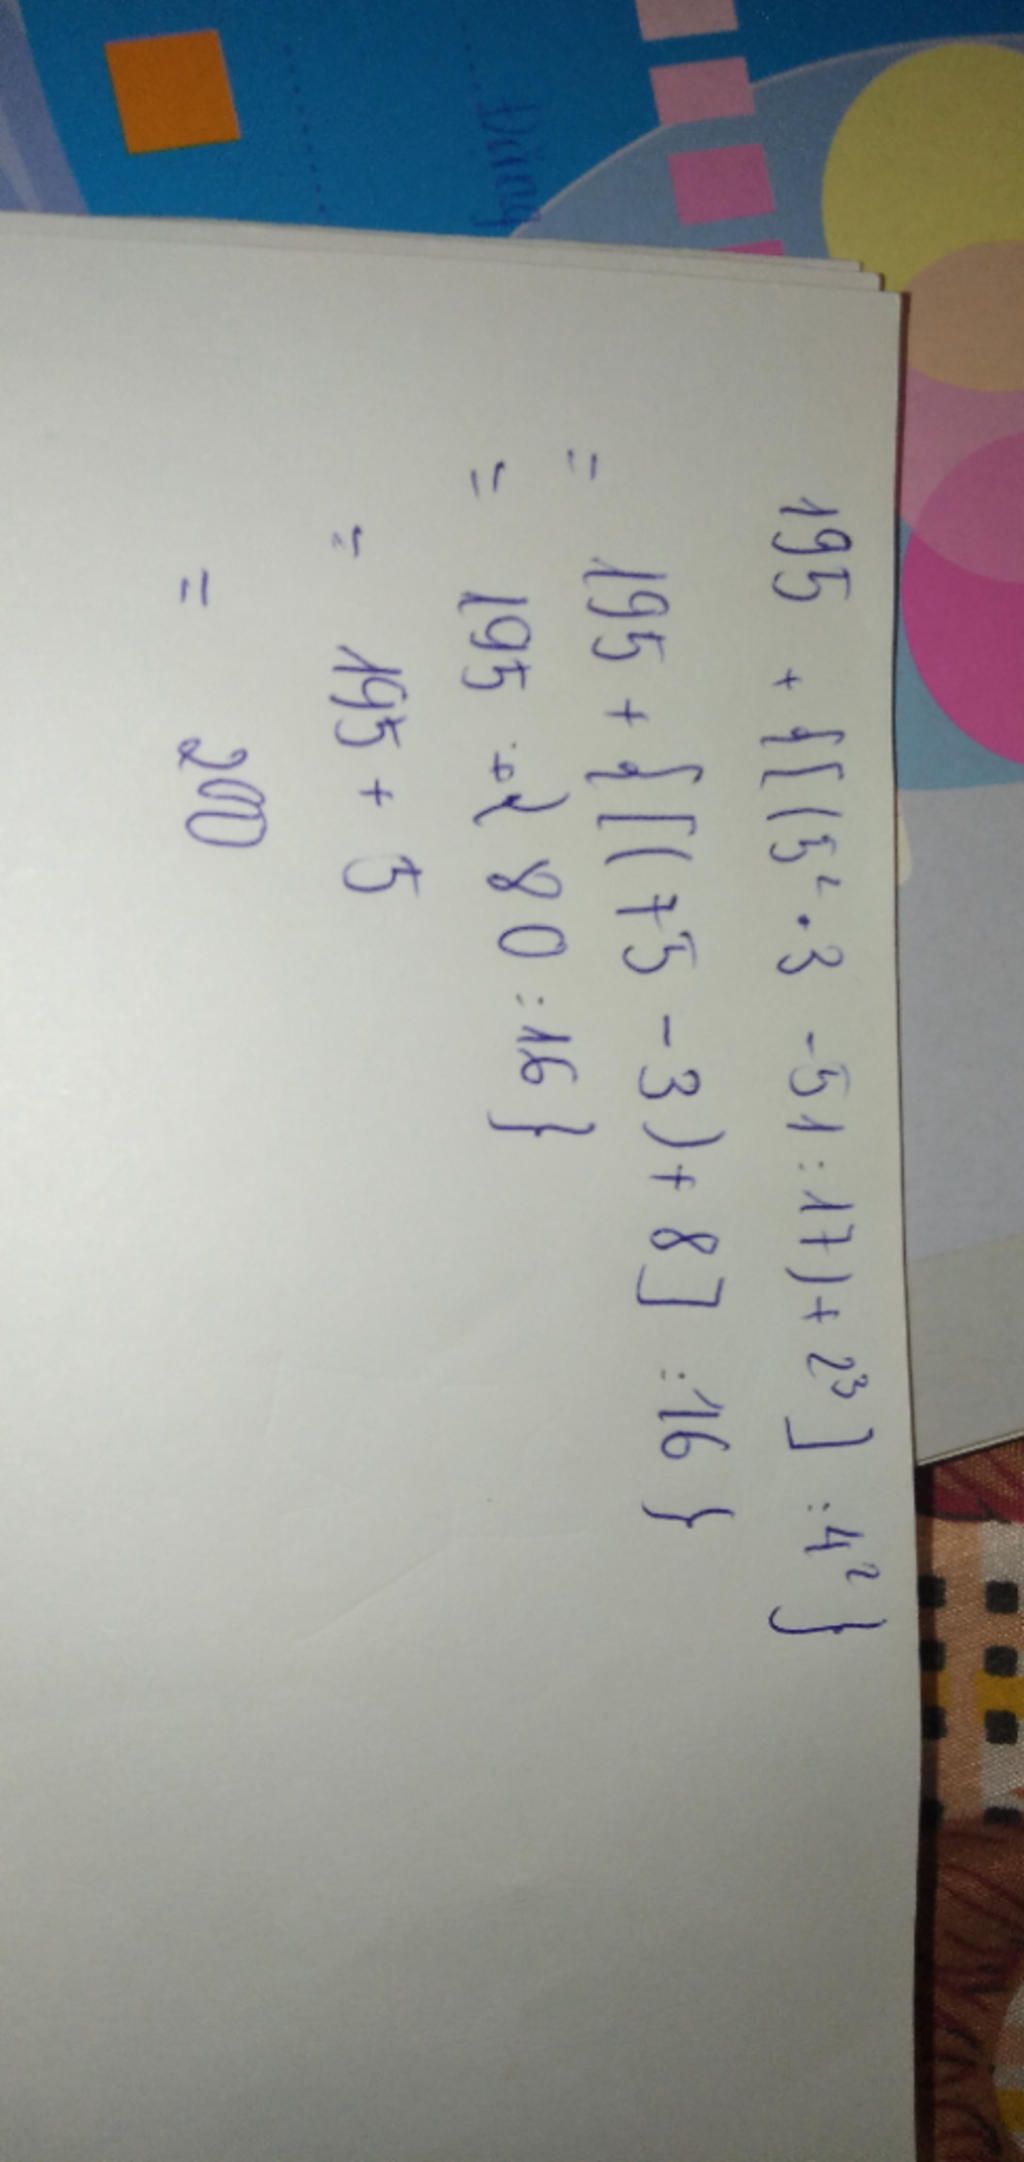 195 + {[(5² . 3 - 51 : 17) + 2³] : 4²}
= 195 + {[(75 - 3) + 8] : 16}
= 195 + { 80 : 16}
= 195 + 5
= 200